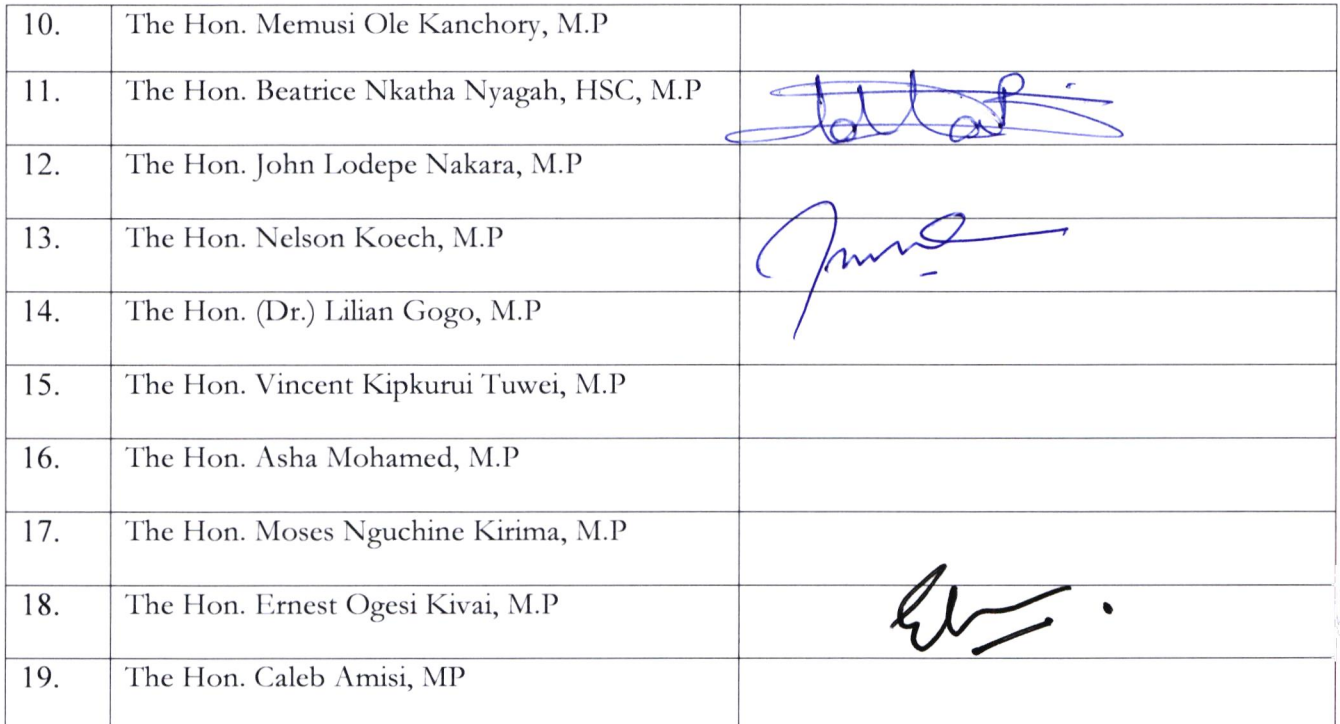 10. The Hon. Memusi Ole Kanchory, M.P
11. The Hon. Beatrice Nkatha Nyagah, HSC, M.P
12. The Hon. John Lodepe Nakara, M.P
13. The Hon. Nelson Koech, M.P
14. The Hon. (Dr.) Lilian Gogo, M.P
15. The Hon. Vincent Kipkurui Tuwei, M.P
16. The Hon. Asha Mohamed, M.P
17. The Hon. Moses Nguchine Kirima, M.P
18. The Hon. Ernest Ogesi Kivai, M.P
19. The Hon. Caleb Amisi, MP